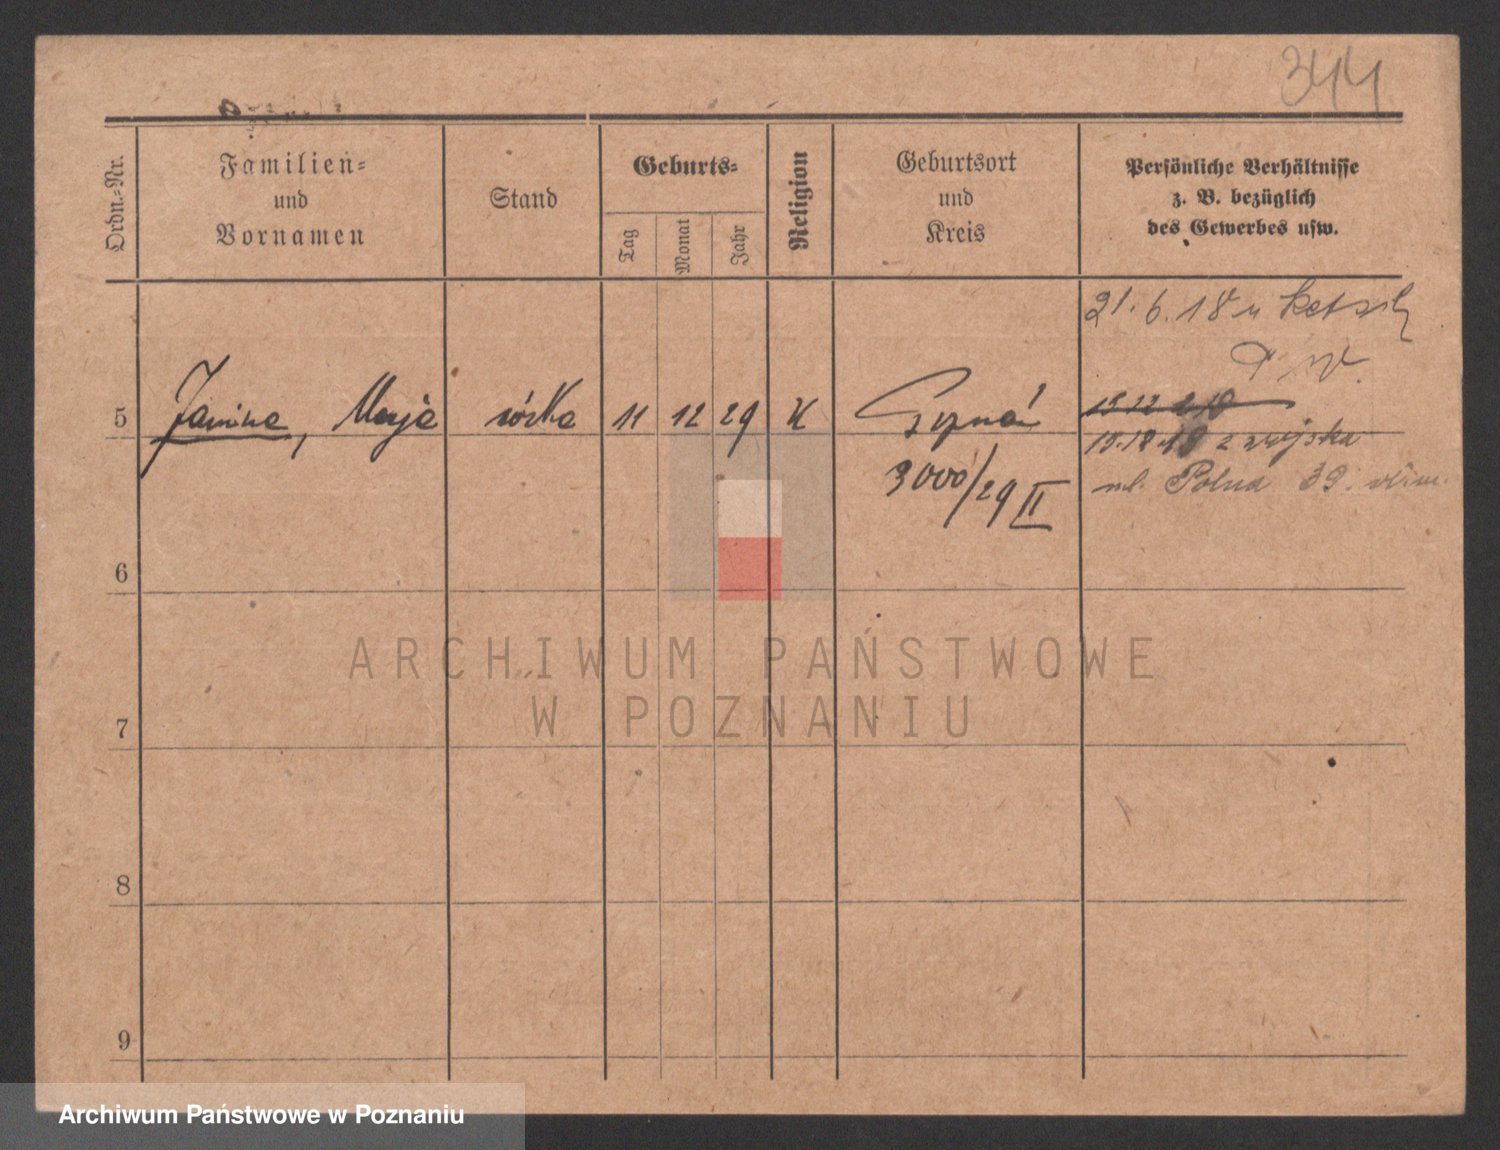 344
Ordn.-Nr.
Familien-
und
Vornamen
Stand
Geburts-
Tag
Monat
Jahr
Religion
Geburtsort
und
Kreis
Persönliche Verhältnisse
z. B. bezüglich
des Gewerbes usw.
21. 6. 18
5 Janina, Marja córka 11 12 29 K Poznań
3000/29 II
z wojska
ul. Polna 39.
6
7
8
9
ARCHIWUM PAŃSTWOWE
W POZNANIU
Archiwum Państwowe w Poznaniu